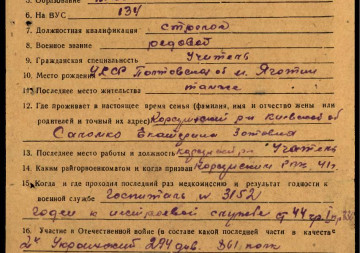 6. На ВУС 134
7. Должностная квалификация: строевой
8. Военное звание рядовой
9. Гражданская специальность Учитель
10. Место рождения УССР Полтавская об м. Яготин
11. Последнее место жительства также
12. Где проживает в настоящее время семья (фамилия, имя и отчество жены или
родителей и точный их адрес) Корсунский р-н Киевской об
Екатерина Зотовна
13. Последнее место работы и должность Учитель
14. Каким райгорвоенкоматом и когда призван Корсунским РВК 41 г.
15. Когда и где проходил последний раз медкомиссию и результат годности к
военной службе Госпиталь № 3152
годен к нестроевой службе ст 44
16. Участие в Отечественной войне (в составе какой последней части и в качестве
2й Украинский 294 див. 861 полк